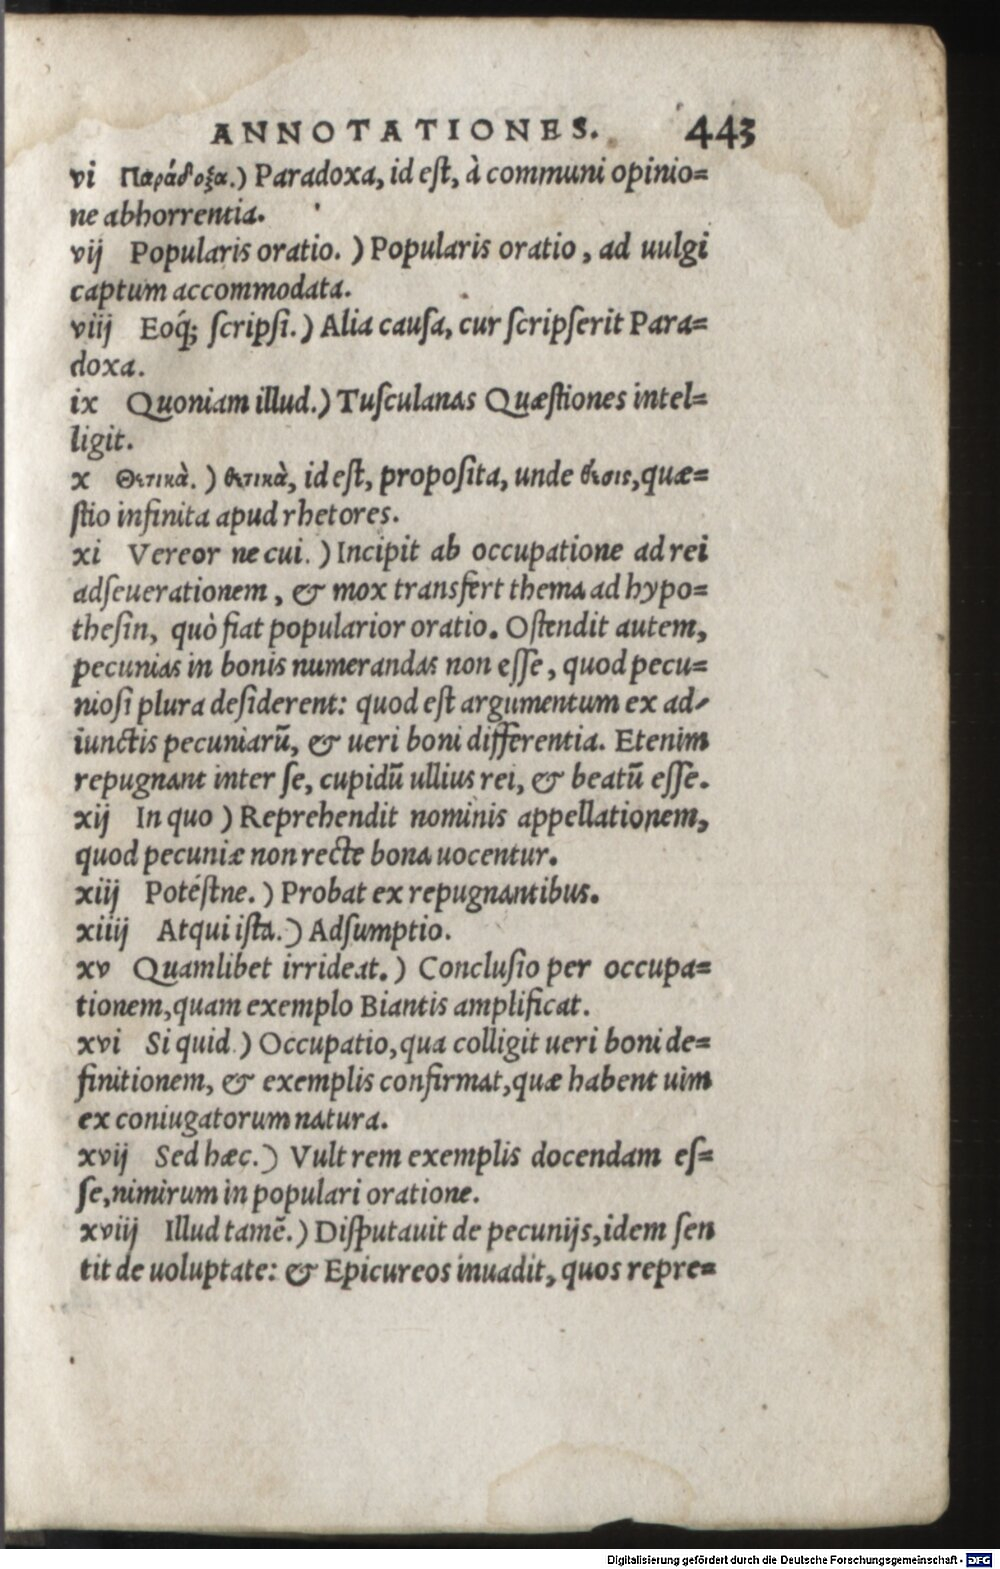 ANNOTATIONES. 443
vi Παράδοξα.) Paradoxa, id eſt, à communi opinio=
ne abhorrentia.
vij Popularis oratio. ) Popularis oratio, ad uulgi
captum accommodata.
viij Eoq́; ſcripſi.) Alia cauſa, cur ſcripſerit Para=
doxa.
ix Quoniam illud.) Tuſculanas Quæſtiones intel=
ligit.
x Θετικὰ. ) θετικὰ, id eſt, propoſita, unde θέσις, quæ=
ſtio infinita apud rhetores.
xi Vereor ne cui. ) Incipit ab occupatione ad rei
adſeuerationem, & mox transfert thema ad hypo=
theſin, quò fiat popularior oratio. Oſtendit autem,
pecunias in bonis numerandas non eſſe, quod pecu=
nioſi plura deſiderent: quod eſt argumentum ex ad=
iunctis pecuniarũ, & ueri boni differentia. Etenim
repugnant inter ſe, cupidũ ullius rei, & beatũ eſſe.
xij In quo ) Reprehendit nominis appellationem,
quod pecuniæ non recte bona uocentur.
xiij Potéſtne. ) Probat ex repugnantibus.
xiiij Atqui iſta.) Adſumptio.
xv Quamlibet irrideat. ) Concluſio per occupa=
tionem, quam exemplo Biantis amplificat.
xvi Si quid.) Occupatio, qua colligit ueri boni de=
finitionem, & exemplis confirmat, quæ habent uim
ex coniugatorum natura.
xvij Sed hæc.) Vult rem exemplis docendam eſ=
ſe, nimirum in populari oratione.
xviij Illud tamẽ.) Diſputauit de pecunijs, idem ſen
tit de uoluptate: & Epicureos inuadit, quos repre=
Digitalisierung gefördert durch die Deutsche Forschungsgemeinschaft - DFG